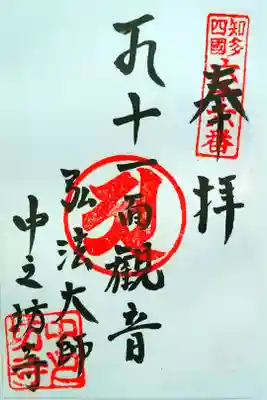 知多
四國
六十六番
奉拝
十一面觀音
弘法大師
中之坊寺